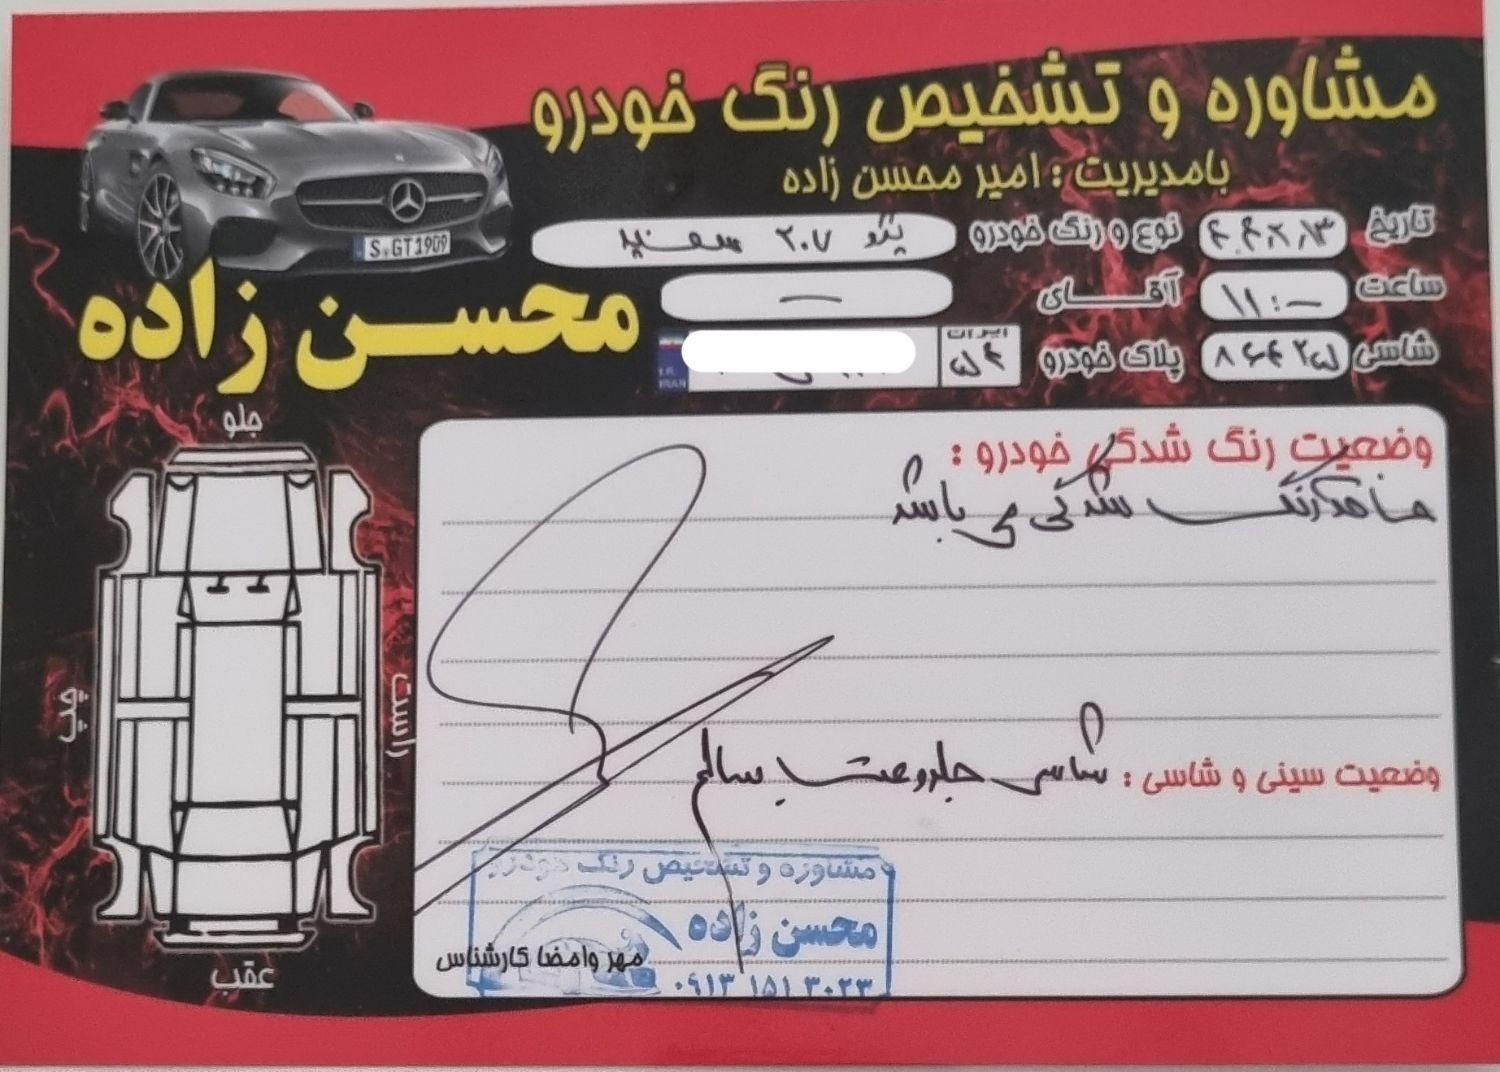 مشاوره و تشخیص رنگ خودرو
بامدیریت : امیر محسن زاده
تاریخ ۴۰۴,۲,۳ نوع و رنگ خودرو پژو ۲۰۷ سفید
ساعت ۱۱:۰۰ آقای —
شاسی ۸۶۴۲۵ پلاک خودرو ایران ۵۴
I.R. IRAN
S GT1909
محسن زاده
جلو
چپ
راست
عقب
وضعیت رنگ شدگی خودرو :
فاقد رنگ شدگی می باشد
وضعیت سینی و شاسی : شاسی جلو و عقب سالم
مشاوره و تشخیص رنگ خودرو
محسن زاده
مهر وامضا کارشناس
۰۹۱۳ ۱۵۱ ۳۰۲۳